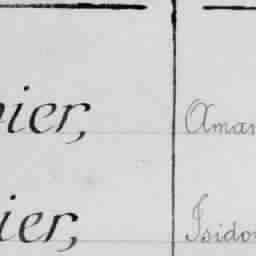 ier, Aman
ier, Isidor